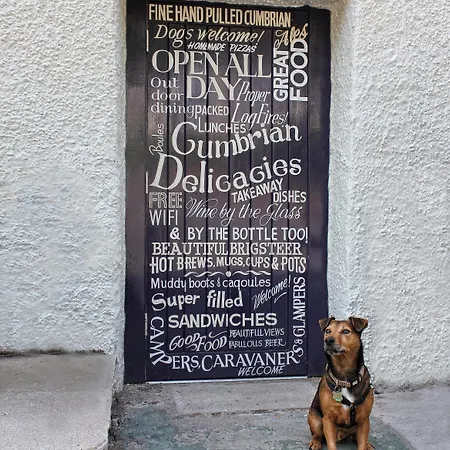 FINE HAND PULLED CUMBRIAN
Ales
Dogs welcome!
HOMEMADE PIZZAS
OPEN ALL
DAY
GREAT
FOOD
Out
door
dining
PACKED
LUNCHES
Proper
Log Fires!
Boules
Cumbrian
Delicacies
TAKEAWAY
DISHES
FREE
WIFI
Wine by the Glass
& BY THE BOTTLE TOO!
BEAUTIFUL BRIGSTEER
HOT BREWS, MUGS, CUPS & POTS
Muddy boots & cagoules
Welcome!
Super filled
SANDWICHES
GOOD
FOOD
BEAUTIFUL VIEWS
FABULOUS BEER
CAMPERS, CARAVANERS & GLAMPERS
WELCOME